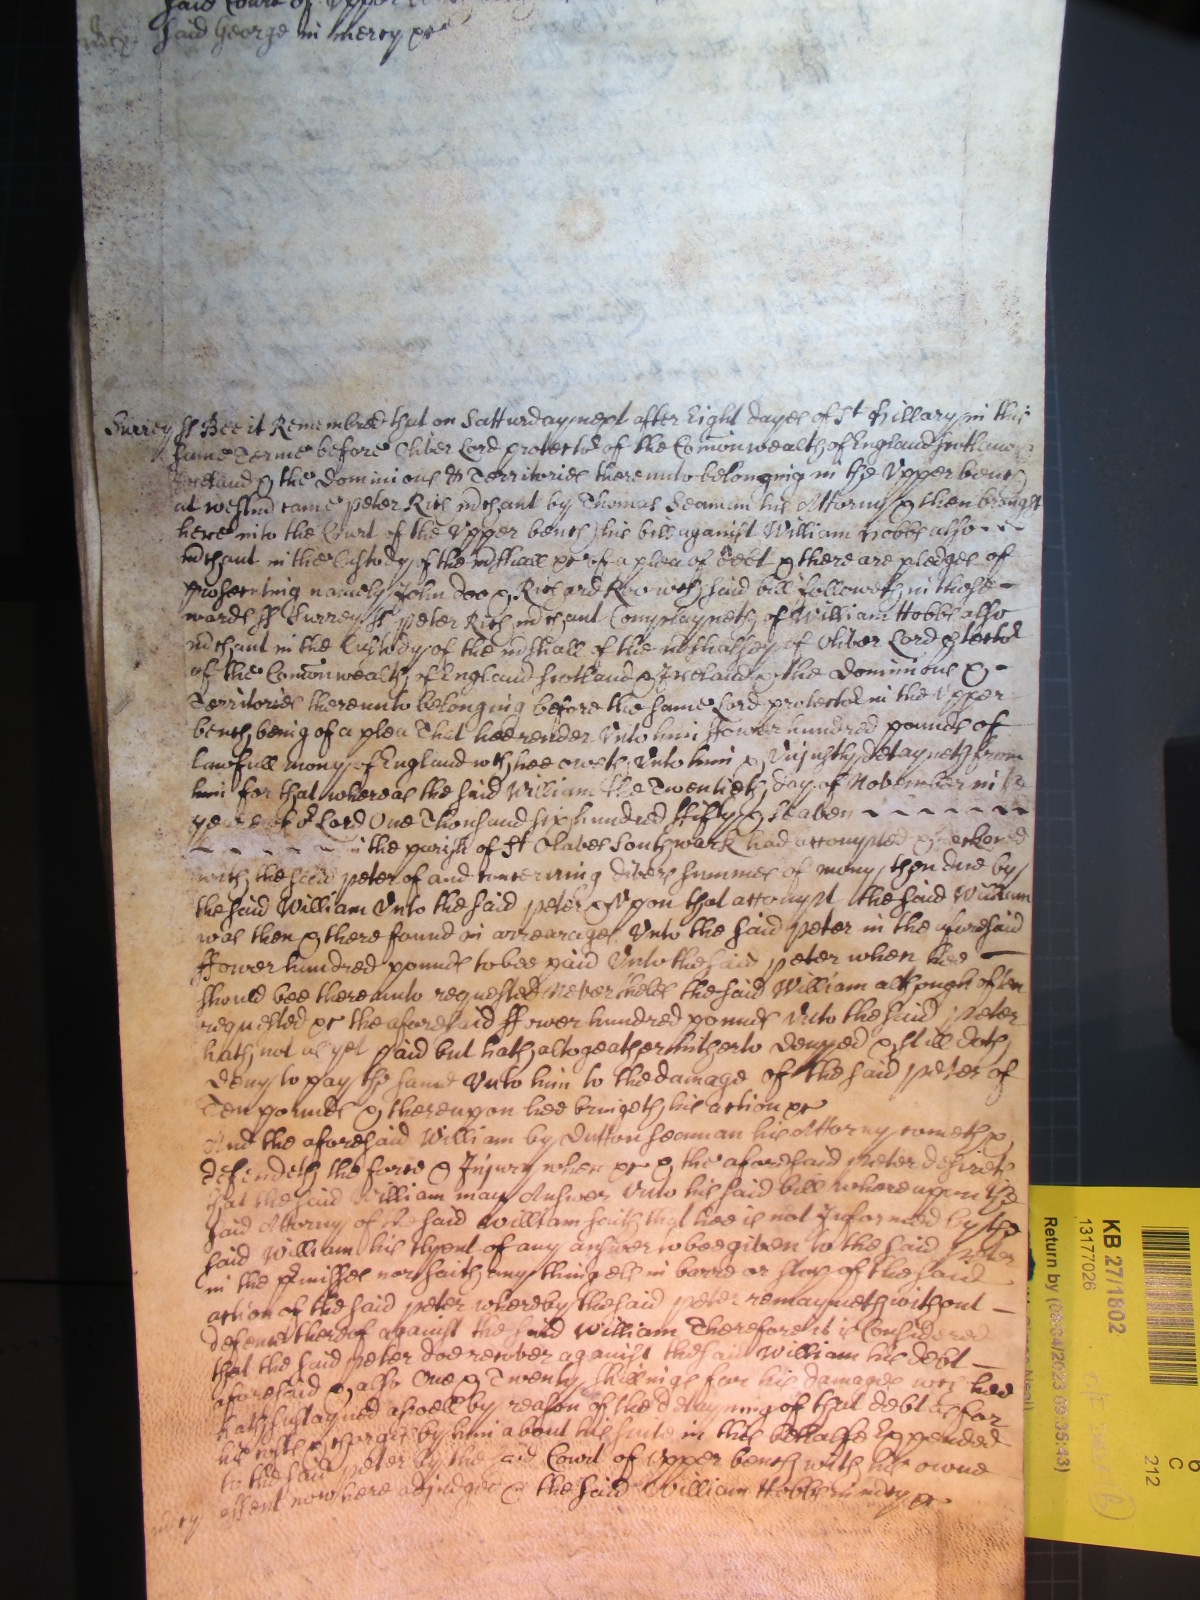 said Court of Upper
said George in mercy &c
Surrey ss Bee it Remembred that on Satturday next after Eight dayes of St Hillary in this
same Terme before Oliver Lord protector of the Comonwealth of England Scotland
Ireland & the Dominions & Territories thereunto belonging in the Upper bench
at westmr came Peter Rich mchant by Thomas Seaman his Attorny & then brought
here into the Court of the Upper bench his bill against William Hobbs also
mchant in the Custody of the mshall &c of a plea of debt & there are pledges of
prosecuting namely John Doo & Richard Roo wch said bill followeth in these
words ss Surrey ss Peter Rich mchant Complayneth of William Hobbs also
mchant in the Custody of the mshall of the mshalsey of Oliver Lord ptector
of the Comonwealth of England Scotland & Ireland & the Dominions &
Territories thereunto belonging before the same Lord protector in the Upper
bench being of a plea That hee render Unto him ffower hundred pounds of
lawfull mony of England wch hee oweth Unto him & Unjustly detayneth from
him for that whereas the said William the Twentieth day of November in the
yeare of or Lord One Thousand six hundred ffifty & seaven
in the parish of St Olaves Southwark had accompted & reckoned
with the said Peter of and concerning divers summes of mony then due by
the said William Unto the said Peter & Upon that accompt the said William
was then & there found in arrearages Unto the said Peter in the aforesaid
ffower hundred pounds to bee paid Unto the said Peter when hee
should bee thereunto requested Neverthelesse the said William although often
requested &c the aforesaid ffower hundred pounds Unto the said Peter
hath not as yet paid but hath altogeather hitherto denyed & still doth
deny to pay the same Unto him to the damage of the said Peter of
Ten pounds & thereupon hee bringeth his action &c
And the aforesaid William by Dutton Seaman his Attorny cometh &
defendeth the force & Injury when &c & the aforesaid Peter desireth
that the said William may Answer Unto his said bill whereupon the
said Attorny of the said William saith that hee is not Informed by the
said William his Clyent of any answer to bee given to the said Peter
in the pmisses nor saith any thing els in barre or stay of the said
action of the said Peter whereby the said Peter remayneth without
defence thereof against the said William Therefore it is Considered
that the said Peter doe recover against the said William his debt
aforesaid & also One & Twenty shillings for his damages wch hee
hath sustayned aswell by reason of the detayning of that debt as for
his costs & charges by him about his suite in this behalfe Expended
to the said Peter by the said Court of Upper bench with his owne
assent now here adjudged & the said William Hobbs in mcy &c
mcy
KB 27/1802
13177026
Return by (08/04/2023 09:35:43)
C
212